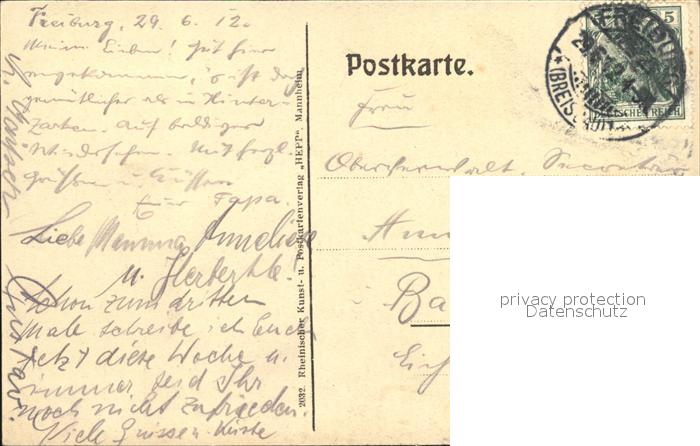 Freiburg, 29. 6. 12.
Meine Lieben! Gut hier
angekommen, 's ist doch
gemütlicher als in Hinter-
zarten. Auf baldiges
Wiedersehen. Mit herzl.
Grüßen u. Küssen
Euer Papa.
Liebe Mamma, Anneliese
u. Herbertle!
Schon zum dritten
Male schreibe ich Euch
jetzt diese Woche u.
immer seid Ihr
noch nicht zufrieden.
Viele Grüsse u. Küsse
2032. Rheinischer Kunst- u. Postkartenverlag „HEPP“ Mannheim.
Postkarte.
Frau
Secretär
Ba
5
FREIBURG
(BREISGAU)
DEUTSCHES REICH
privacy protection
Datenschutz